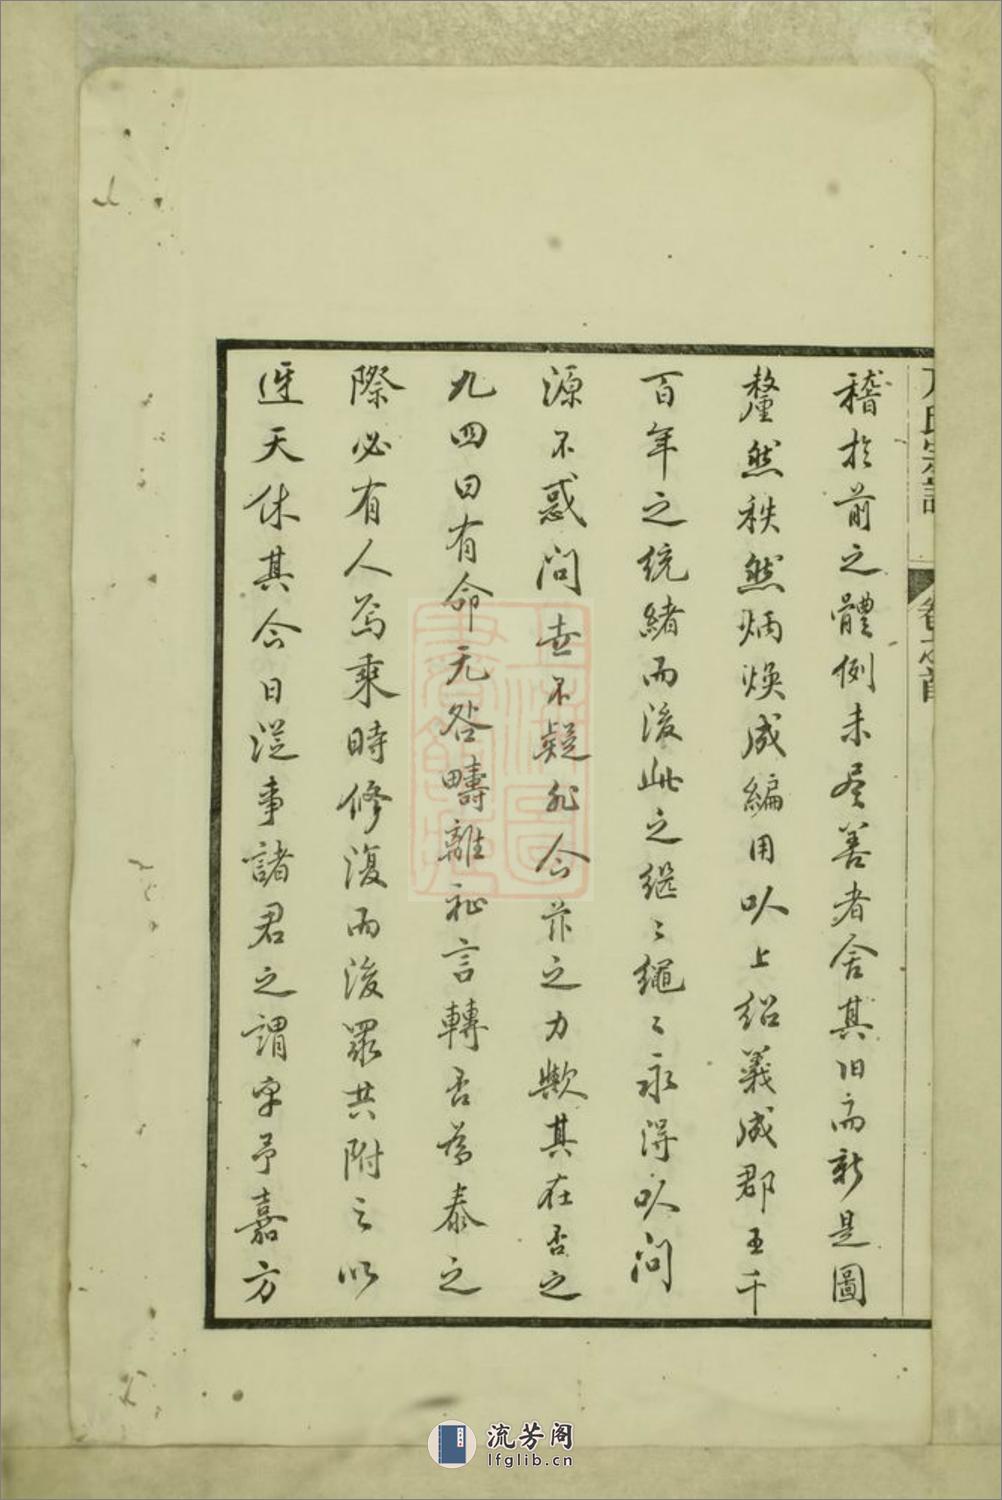 稽於前之體例未尽善者舍其旧而新是圖
釐然秩然炳焕成編用以上紹義成郡王千
百年之統緒而後此之继〻繩〻永得以问
源不惑问世不疑非令苏之力歟其在否之
九四曰有命无咎疇離祉言轉否為泰之
際必有人焉乘時修復而後众共附之以
迓天休其今日從事諸君之謂乎予嘉方
方氏宗譜
卷之首
流芳阁
lfglib.cn